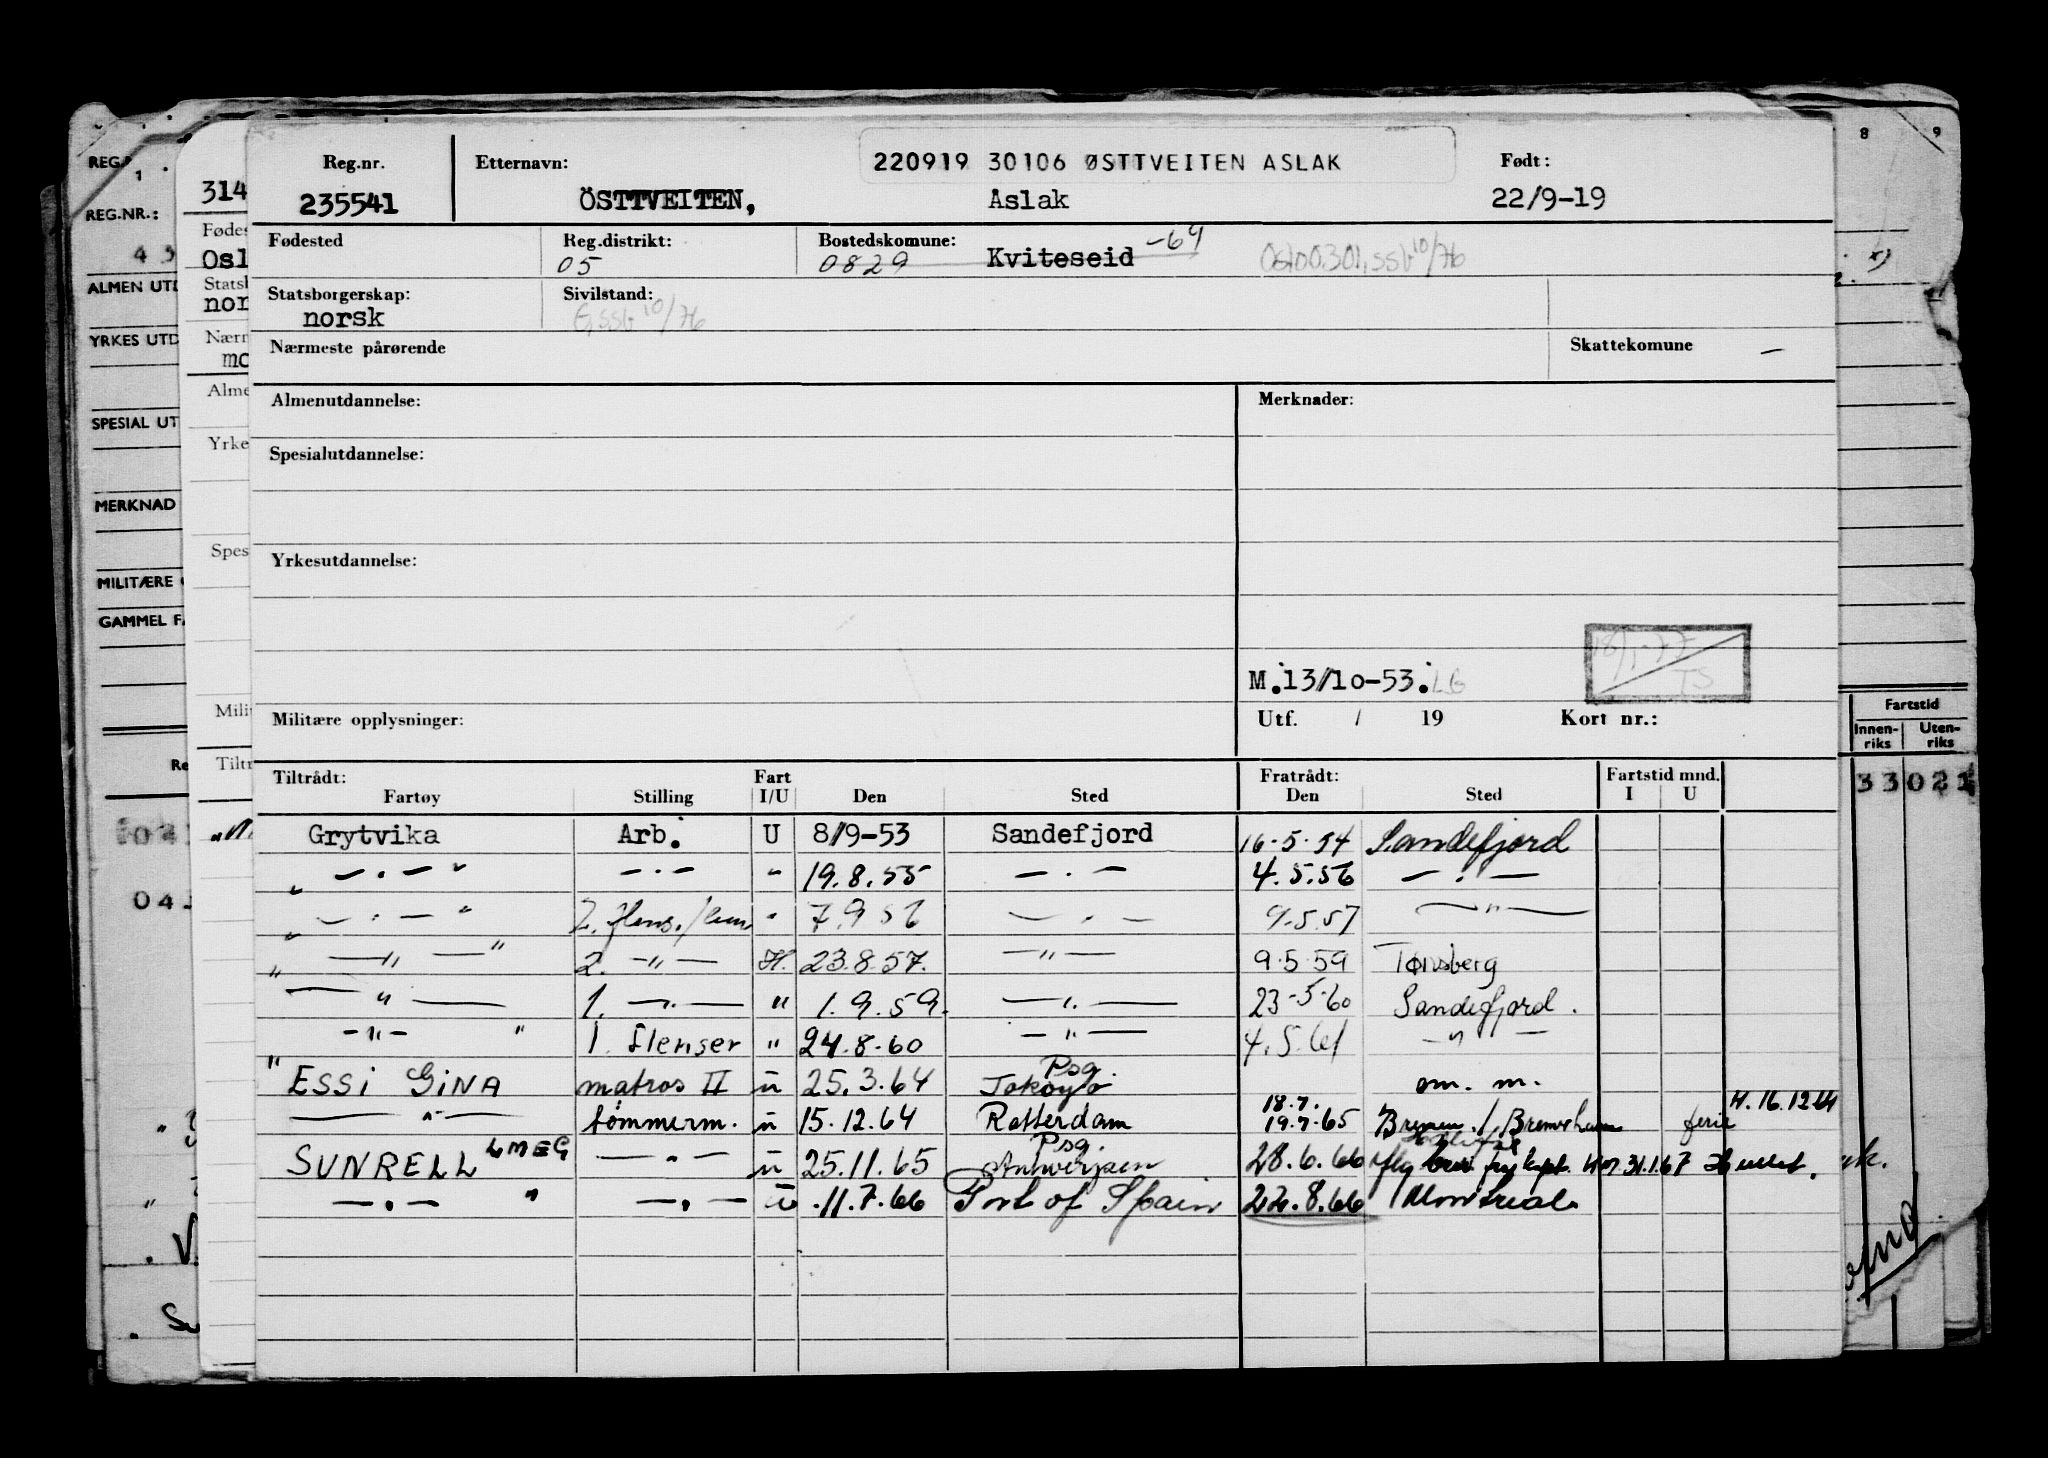 REG.NR.:
ALMEN UTD
YRKES UTD
SPESIAL UT
MERKNAD
MILITÆRE
GAMMEL F
314
Osl
nor
Alme
Yrke
Spes
Milit
Tiltr
8 9
Fartstid
Innen-riks Uten-riks
33021
Reg.nr. Etternavn: 220919 30106 ØSTTVEITEN ASLAK Født:
235541 ÖSTTVEITEN, Aslak 22/9-19
Fødested Reg.distrikt: Bostedskomune: Kviteseid -64
05 0829
Statsborgerskap: Sivilstand:
norsk
Nærmeste pårørende Skattekomune —
Almenutdannelse: Merknader:
Spesialutdannelse:
Yrkesutdannelse:
M.13/10-53. LG
Militære opplysninger: Utf. / 19 Kort nr.:
Tiltrådt: Fart Fratrådt: Fartstid mnd.
Fartøy Stilling I/U Den Sted Den Sted I U
Grytvika Arb. U 8/9-53 Sandefjord 16-5-54 Sandefjord
" — . — " — . — " 19.8.55 — . — 4.5.56 — . —
" — . — " 2. flens. " 7.9.56 — . — 9.5.57 — " —
" — " — " 2. — " — H. 23.8.57. — " — 9.5.59 Tønsberg
— " — 1. — . — " 1.9.59. — " — 23-5-60 Sandefjord.
— " — " 1. flenser " 24.8.60 — " — 4.5.61 — " —
" ESSI GINA matros II u 25.3.64 Psg. om. m.
— " — tømmerm. u 15.12.64 Rotterdam 18.7. 19.7.65 Bremen / ferie H. 16.12.64
SUNRELL LMEG — " — u 25.11.65 Psg. Antwerpen 28.6.66 31.1.67
— . — " — . — u 11.7.66 Port of Spain 22.8.66 Montreal